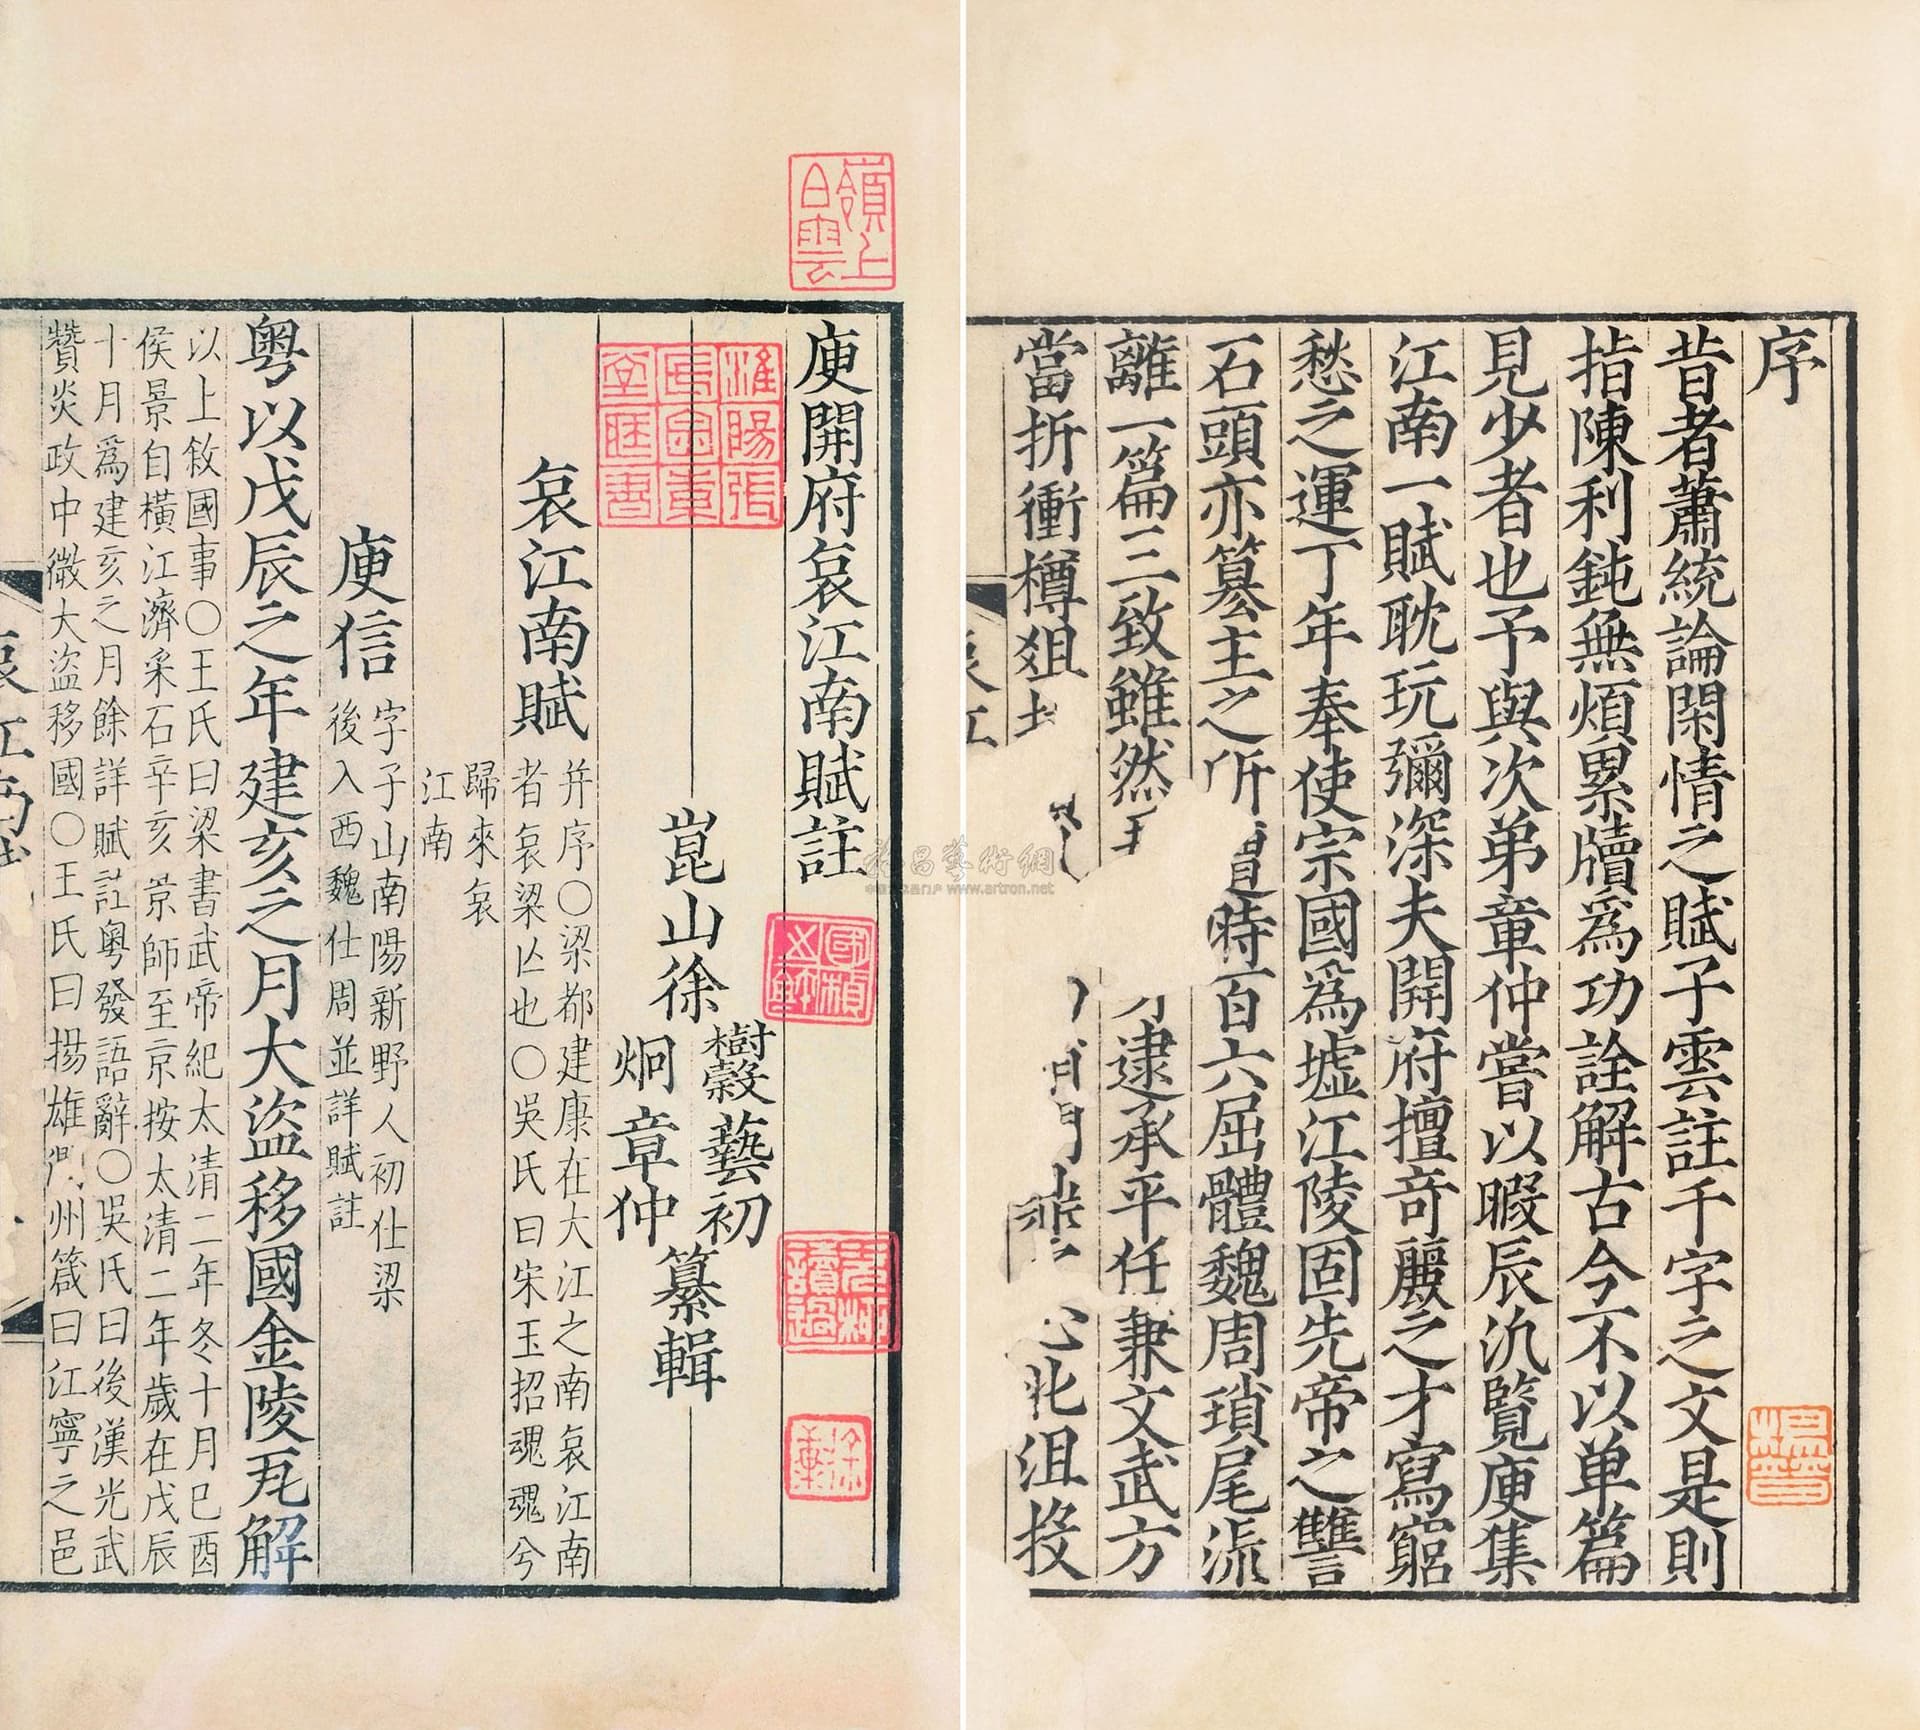 序
昔者蕭統論閑情之賦子雲註千字之文是則
指陳利鈍無煩累牘爲功詮解古今不以单篇
見少者也予與次弟章仲嘗以暇辰汎覽庾集
江南一賦耽玩彌深夫開府擅奇麗之才寫窮
愁之運丁年奉使宗國爲墟江陵固先帝之讐
石頭亦篡主之所 時百六屈體魏周瑣尾流
離一篇三致雖然 逮承平任兼文武方
當折衝樽爼 北沮投
哀江
庾開府哀江南賦註
崑山徐
樹穀藝初
炯章仲
纂輯
哀江南賦
并序○梁都建康在大江之南哀江南
者哀梁亾也○吳氏曰宋玉招魂魂兮
歸來哀
江南
庾信
字子山南陽新野人初仕梁
後入西魏仕周並詳賦註
粤以戊辰之年建亥之月大盜移國金陵瓦解
以上敘國事○王氏曰梁書武帝紀太清二年冬十月巳酉
侯景自橫江濟采石辛亥景師至京按太清二年歲在戊辰
十月爲建亥之月餘詳賦註粤發語辭○吳氏曰後漢光武
贊炎政中微大盜移國○王氏曰揚雄 州箴曰江寧之邑
哀江南
嶺上白雲
國楨
讀過
徐
www.artron.net